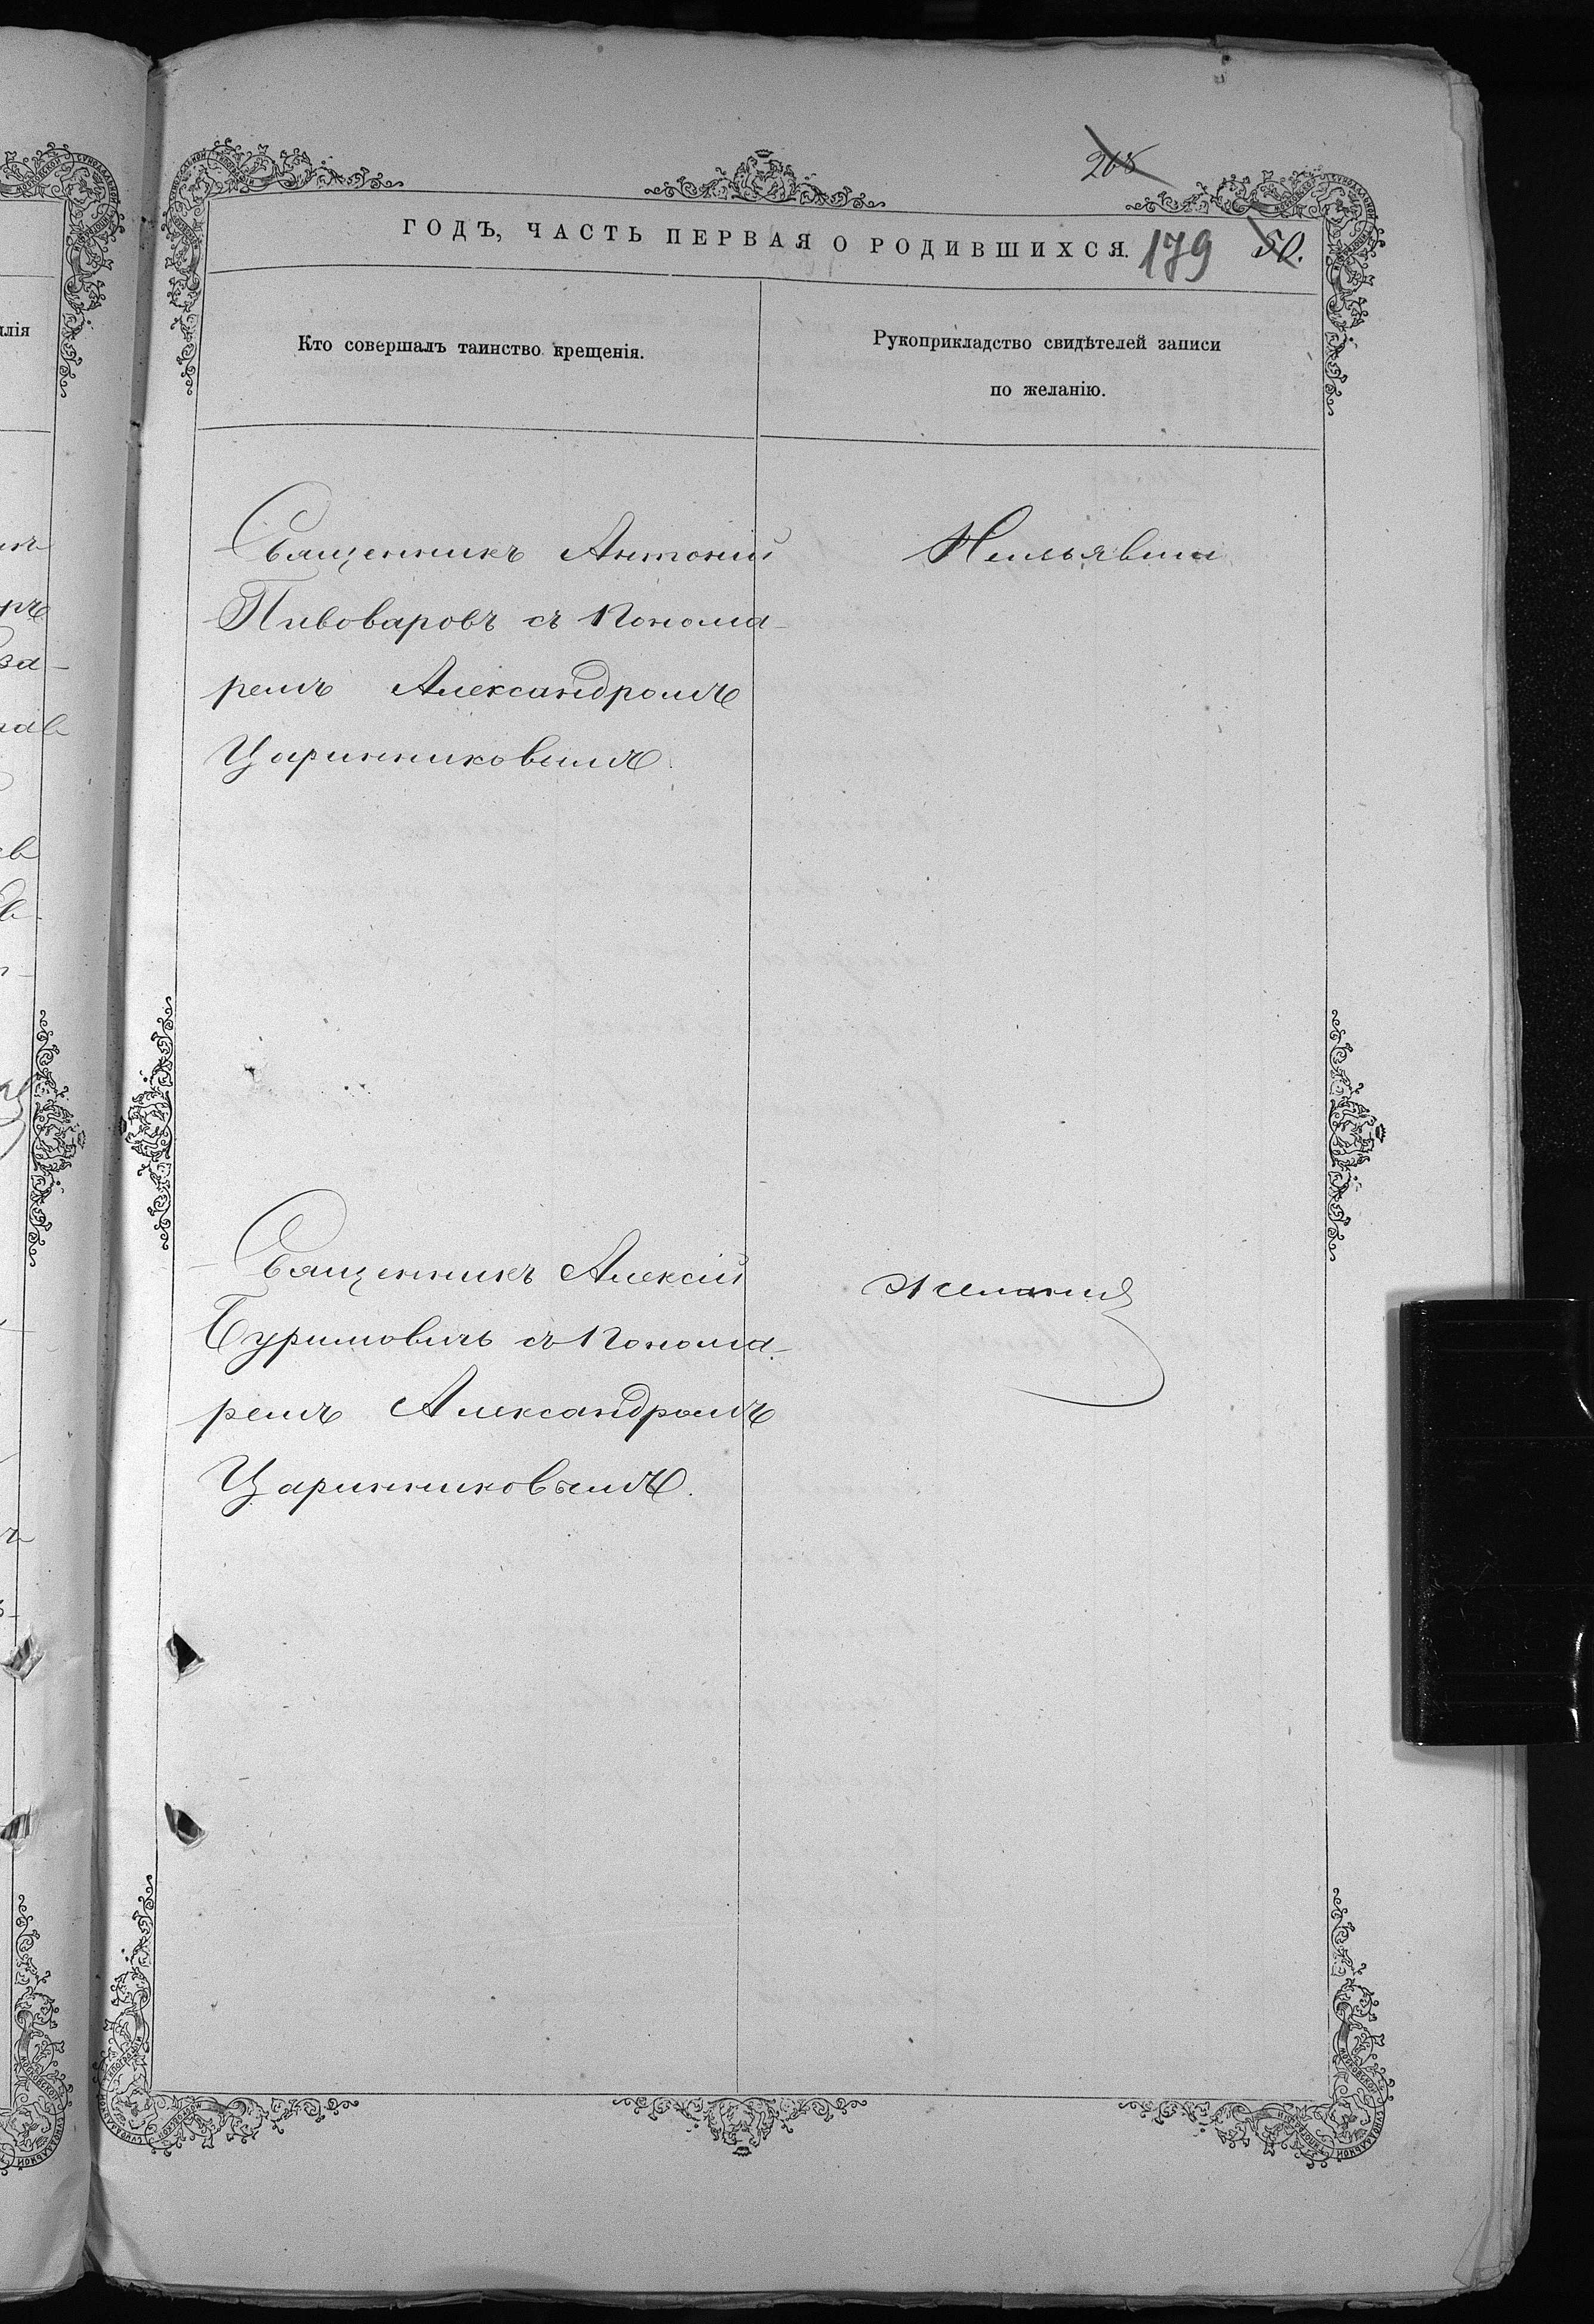 268
ГОДЪ, ЧАСТЬ ПЕРВАЯ О РОДИВШИХСЯ.
179
50.
Кто совершалъ таинство крещенія.
Рукоприкладство свидѣтелей записи
по желанію.
Священникъ Антоній
Пивоваровъ съ Понома-
ремъ Александромъ
Царинниковымъ
Неизъявили
Священникъ Алексій
Буримовичъ съ Понома-
ремъ Александромъ
Царинниковымъ.
желанія